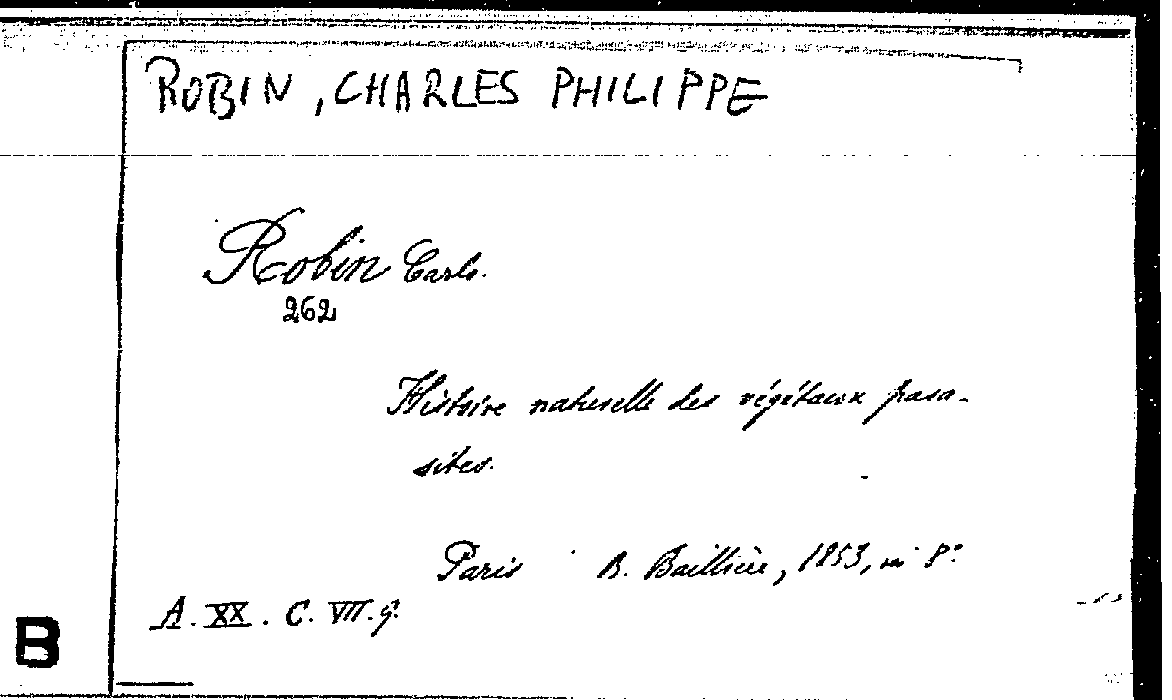 ROBIN, CHARLES PHILIPPE
Robin Carlo.
262
Histoire naturelle des végétaux para-
sites.
Paris B. Baillière, 1853, in 8°.
A. XX. C. VII. g.
B